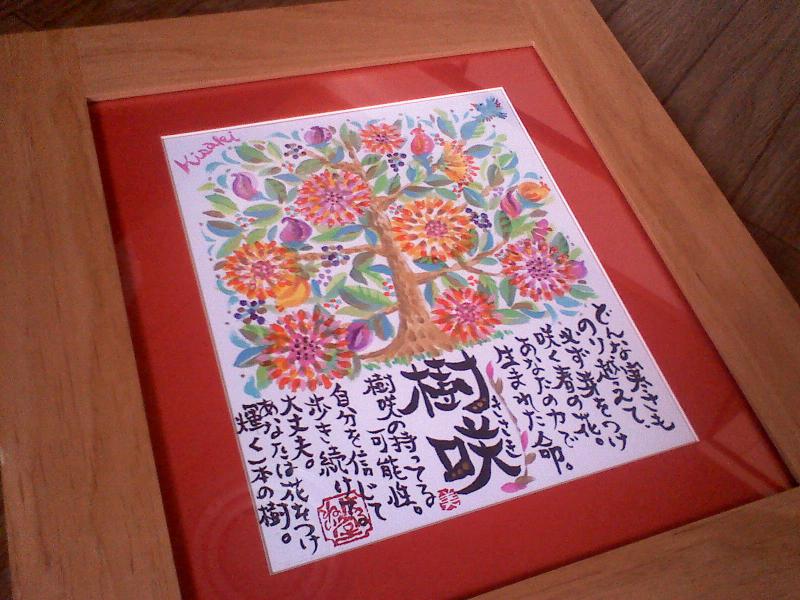 Kisaki
どんな寒さも
のり越えて、
必ず芽をつけ
咲く春の花。
あなたの力で
生まれた命。
樹咲
きさき
美
樹咲の持ってる
可能性。
自分を信じて
歩き続け
大丈夫。
あなたは花をつけ
輝く一本の樹。